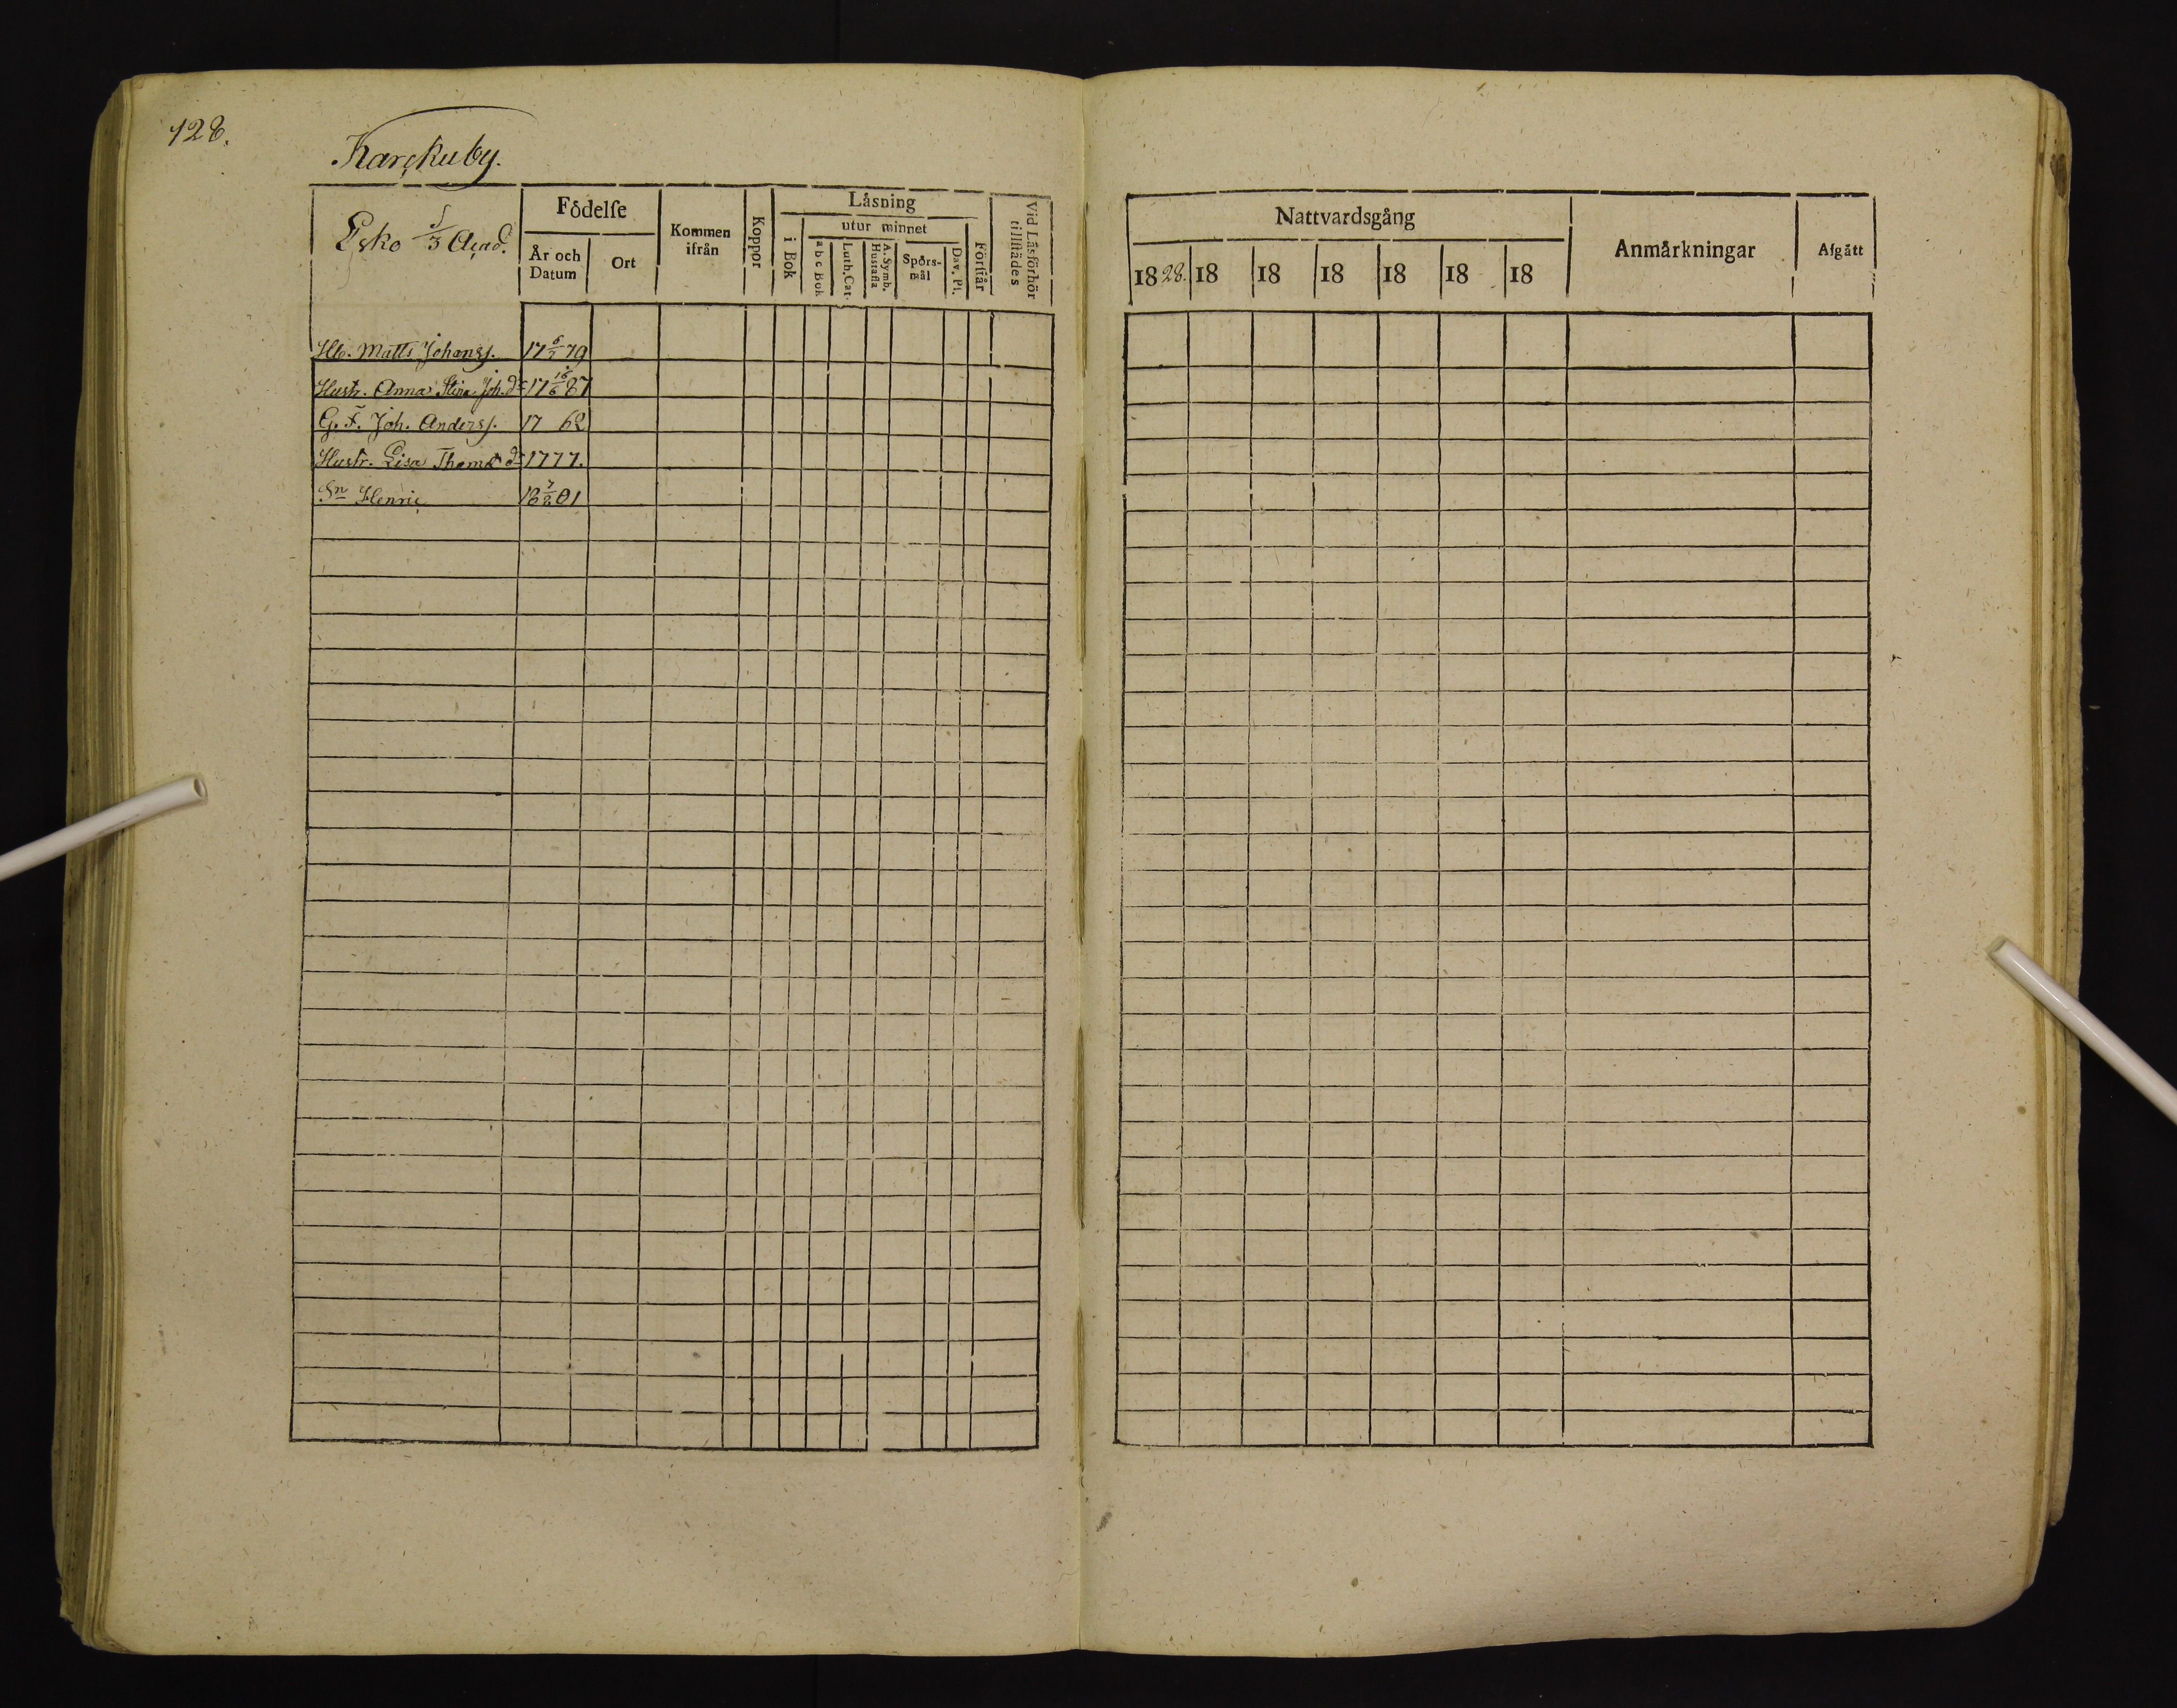 128.
Karskuby.
Esko 1/3 Acad.
Födelse
År och Datum
Ort
Kommen ifrån
Koppor
Låsning
i Bok
utur minnet
a b c Bok
Luth. Cat.
A. Symb. Hustafla
Spörs-mål
Dav. Ps.
Förstår
Vid Låsförhör tillstädes
Hb. Matts Johanss. 17 6/7 79
Hustr. Anna Stina Joh.dr 17 18/6 87
G. F. Joh. Anderss. 17 62
Hustr. Lisa Thoms dr 1777.
Sn Henric 18 7/8 01
Nattvardsgång
1828. 18 18 18 18 18 18
Anmärkningar
Afgått